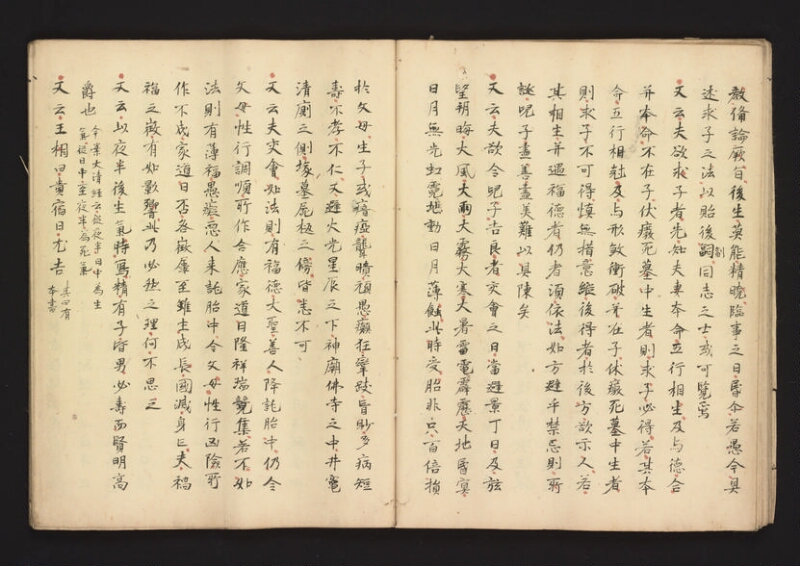 敷備論厥旨後生莫能精曉臨事之日昏尒若愚今具
述求子之法以貽後嗣同志之士或可覽焉
又云夫欲求子者先知夫妻本命五行相生及与德合
并本命不在子休癈死墓中生者則求子必得若其本
命五行相尅及与形煞衝破并在子休癈死墓中生者
則求子不可得慎無措意縱後得者於後方欲示人若
其相生并遇福德者仍者須依法如方避乎禁忌則所
誕兒子盡善盡美難以具陳矣
又云夫欲令兒子吉良者交會之日當避景丁日及弦
望朔晦大風大雨大霧大寒大暑雷電霹靂天地昬冥
日月無光虹霓地動日月薄蝕此時受胎非只百倍損
於父母生子或瘖瘂聾聵頑愚癲狂攣跛盲眇多病短
壽不孝不仁又避火光星辰之下神廟佛寺之中井竈
清廁之側塚墓屍柩之傍皆悉不可
又云夫交會如法則有福德大聖善人降託胎中仍令
父母性行調順所作合應家道日隆祥瑞競集若不如
法則有薄福愚癡惡人来託胎中令父母性行凶險所
作不成家道日否各徵屢至雖生成長國滅身亡夫禍
福之徵有如影響此乃必然之理何不思之
又云以夜半後生氣時寫精有子皆男必壽而賢明高
爵也
今案大清経云從夜半日中為生
氣從日中至夜半為死氣
又云王相日貴宿日尤吉
其日有
本書